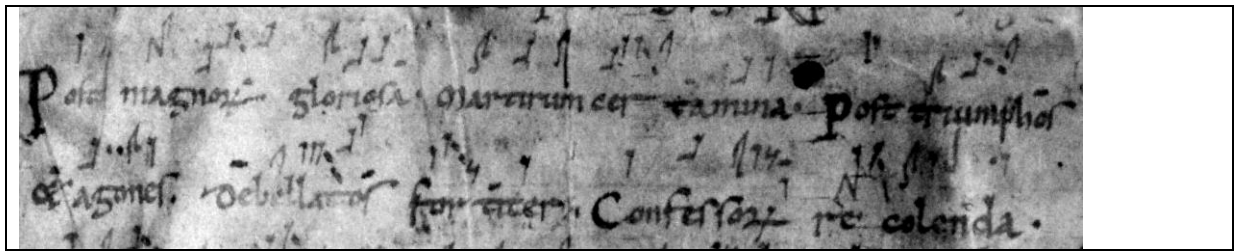 Post magnoꝝ gloriosa · Martirum certamina · Post triumphos
& agones · Debellatos fortiter · Confessoꝝ recolenda ·